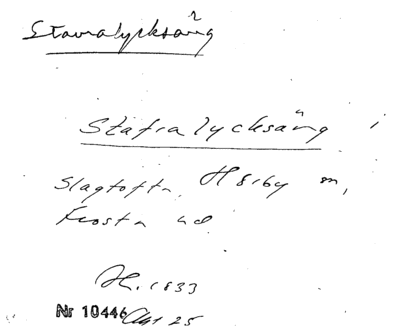 Stavralycksäng
Stafralycksäng
Slagtofta, Hörby m,
Frosta hd
1833
Nr 10446 Akt 25